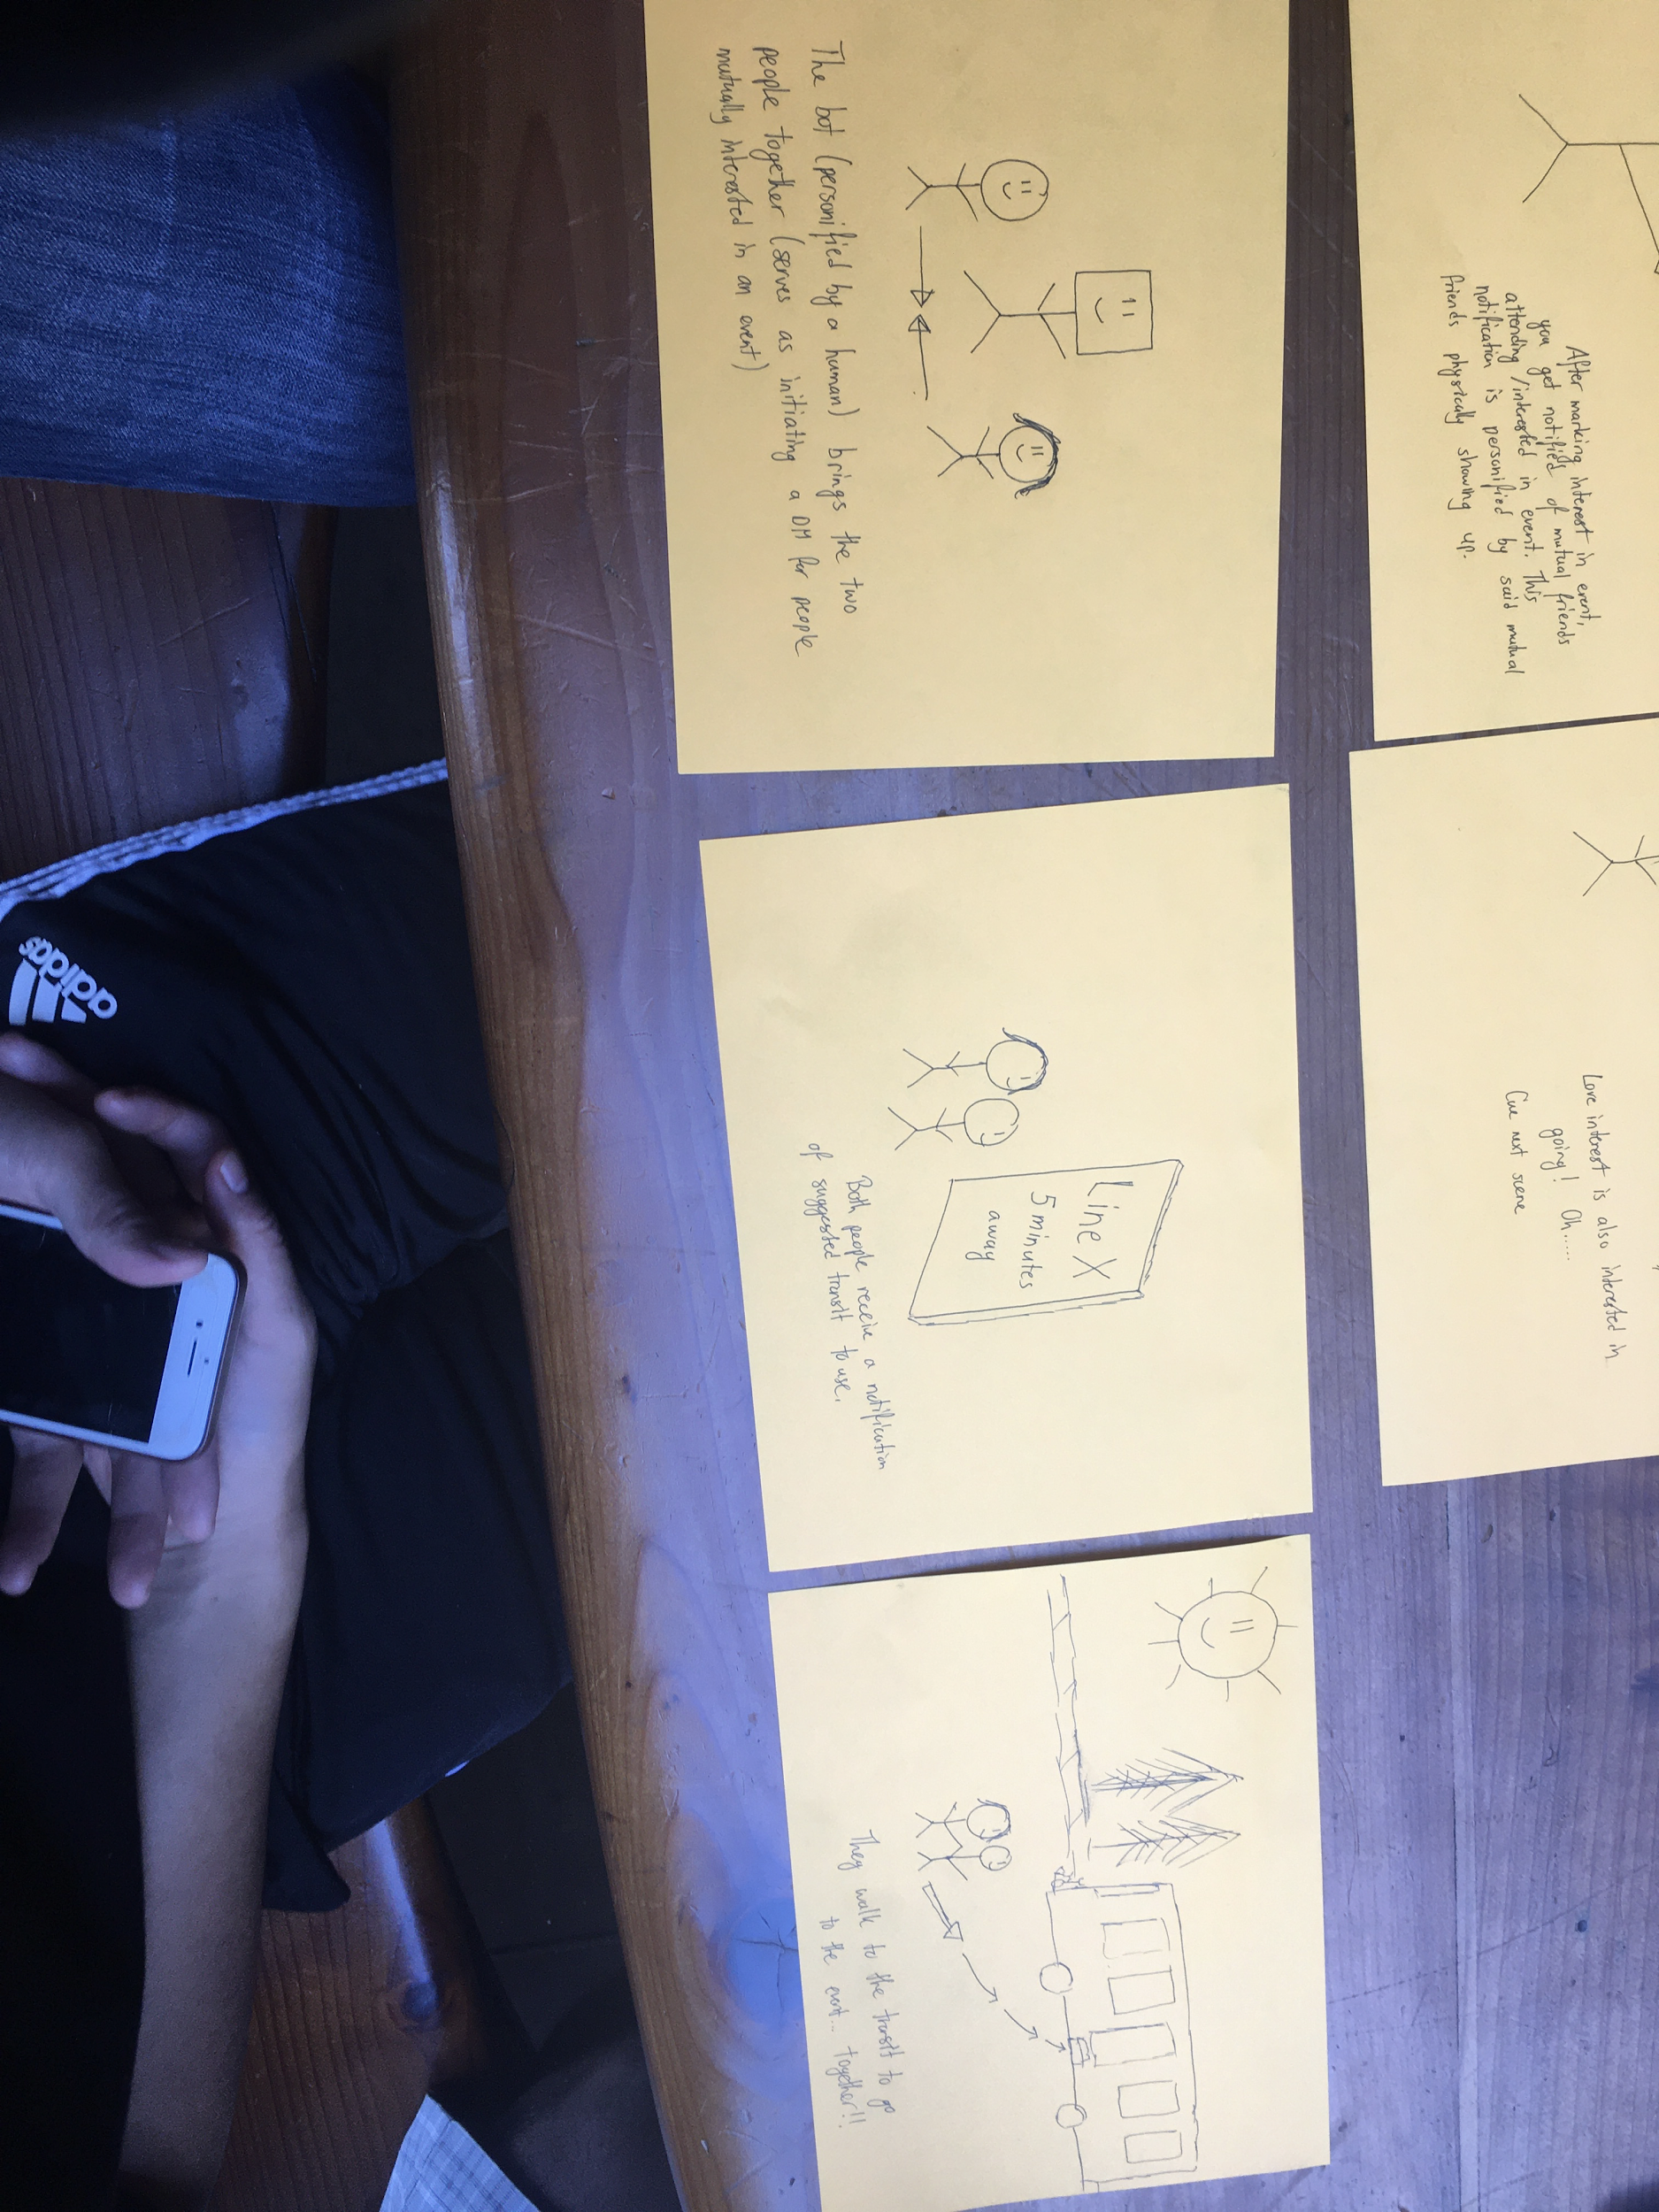 After marking interest in event,
you get notified of mutual friends
attending/interested in event. This
notification is personified by said mutual
friends physically showing up.
Love interest is also interested in
going! Oh.....
Cue next scene
The bot (personified by a human) brings the two
people together (serves as initiating a DM for people
mutually interested in an event)
Line X
5 minutes
away
Both people receive a notification
of suggested transit to use.
They walk to the transit to go
to the event... together!!
adidas